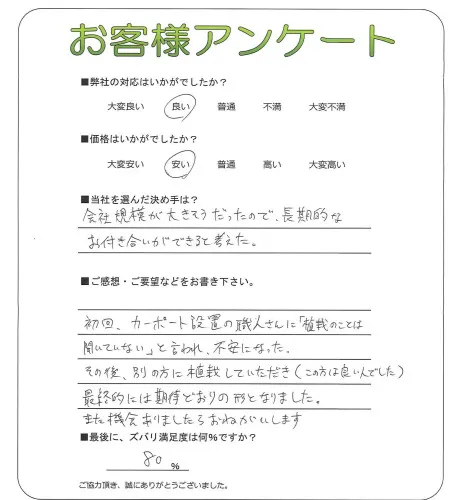 お客様アンケート
■弊社の対応はいかがでしたか?
大変良い 良い 普通 不満 大変不満
■価格はいかがでしたか?
大変安い 安い 普通 高い 大変高い
■当社を選んだ決め手は?
会社規模が大きそうだったので、長期的な
お付き合いができると考えた。
■ご感想・ご要望などをお書き下さい。
初回、カーポート設置の職人さんに「植栽のことは
聞いていない」と言われ、不安になった.
その後、別の方に植栽していただき(この方は良い人でした)
最終的には期待どおりの形となりました。
また機会ありましたらおねがいします
■最後に、ズバリ満足度は何%ですか?
80 %
ご協力頂き、誠にありがとうございました。